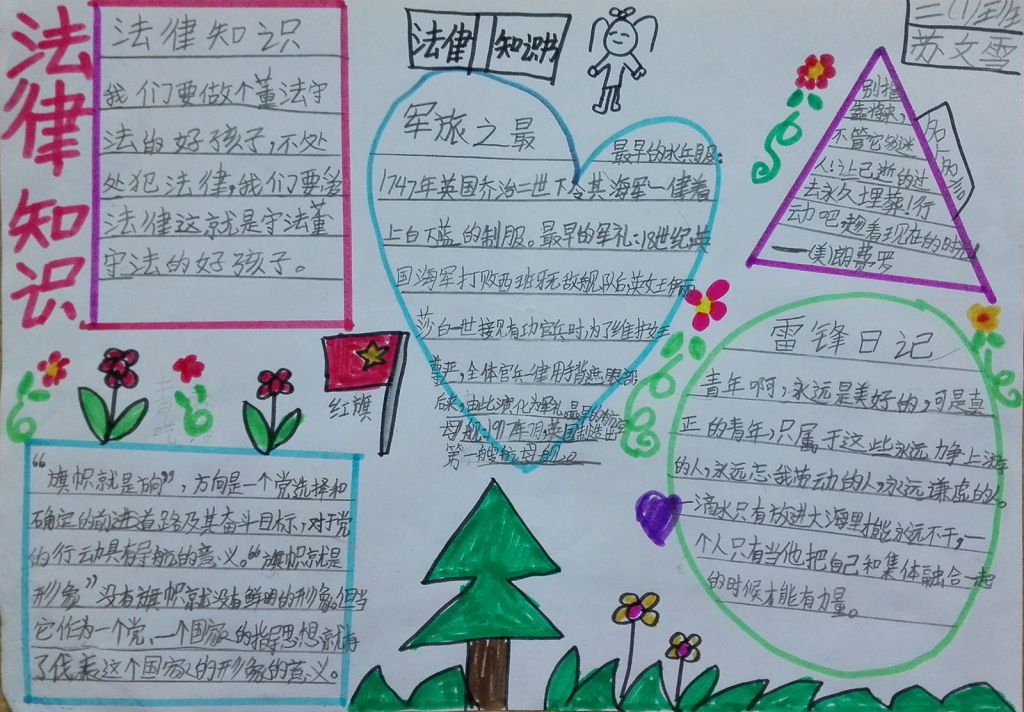 法律知识
法律知识
我们要做个董法守
法的好孩子,不处
处犯法律,我们要爱
法律这就是守法董
守法的好孩子。
法律 知识书
军旅之最
最早的水兵服:
1747年英国乔治二世下令其海军一律着
上白下蓝的制服。最早的军礼:18世纪英
国海军打败西班牙无敌舰队后英女王伊丽
莎白一世接见有功官兵时,为了维护女王
尊严,全体官兵一律用手背遮眼部
后来,由此演化为军礼。最早的航空
母舰:1917年,英国制造出
第一艘航空母舰。
三(1)班
苏文雪
名人名言
别指
靠将来,
不管它多迷
人!让已逝的过
去永久埋葬!行
动吧,趁着现在的时光
——(美)朗费罗
红旗
“旗帜就是方向”,方向是一个党选择和
确定的前进道路及其奋斗目标,对于党
的行动具有导航的意义。“旗帜就是
形象”没有旗帜就没有鲜明的形象。但当
它作为一个党、一个国家的指导思想就有
了代表这个国家的形象的意义。
雷锋日记
青年啊,永远是美好的,可是真
正的青年,只属于这些永远力争上游
的人,永远忘我劳动的人,永远谦虚的人。
一滴水只有放进大海里才能永远不干,一
个人只有当他把自己和集体融合一起
的时候才能有力量。